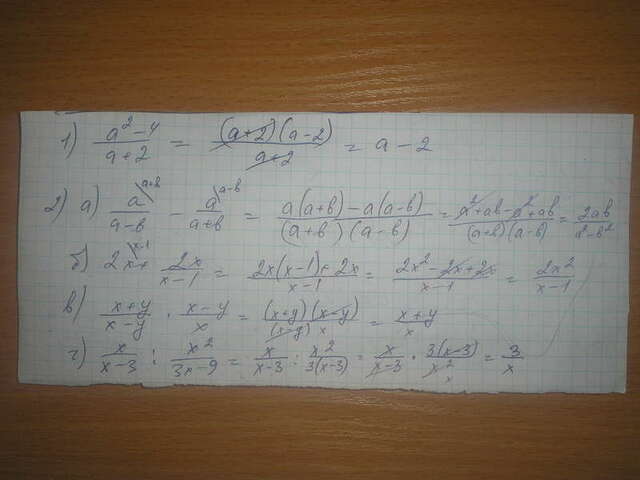 1) (a² - 4)/(a + 2) = ((a+2)(a-2))/(a+2) = a - 2
2) а) a^(a+в)/(a-в) - a^(a-в)/(a+в) = (a(a+в) - a(a-в))/((a+в)(a-в)) = (a² + aв - a² + aв)/((a+в)(a-в)) = 2aв/(a² - в²)
б) 2x^(x-1) + 2x/(x-1) = (2x(x-1) + 2x)/(x-1) = (2x² - 2x + 2x)/(x-1) = 2x²/(x-1)
в) (x+y)/(x-y) · (x-y)/x = ((x+y)(x-y))/((x-y) x) = (x+y)/x
г) x/(x-3) : x²/(3x-9) = x/(x-3) : x²/(3(x-3)) = x/(x-3) · 3(x-3)/x² = 3/x